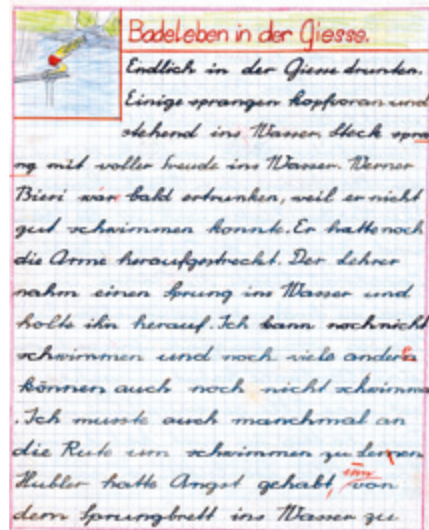 Badeleben in der Giesse.
Endlich in der Giesse drunten.
Einige sprangen kopfvoran und
stehend ins Wasser. Steck spra
ng mit voller Freude ins Wasser. Werner
Bieri wär bald ertrunken, weil er nicht
gut schwimmen konnte. Er hatte noch
die Arme heraufgestreckt. Der Lehrer
nahm einen Sprung ins Wasser und
holte ihn herauf. Ich kann noch nicht
schwimmen und noch viele andere
können auch noch nicht schwimme
. Ich musste auch manchmal an
die Rute um schwimmen zu lernen
Hubler hatte Angst gehabt, von
dem Sprungbrett ins Wasser zu